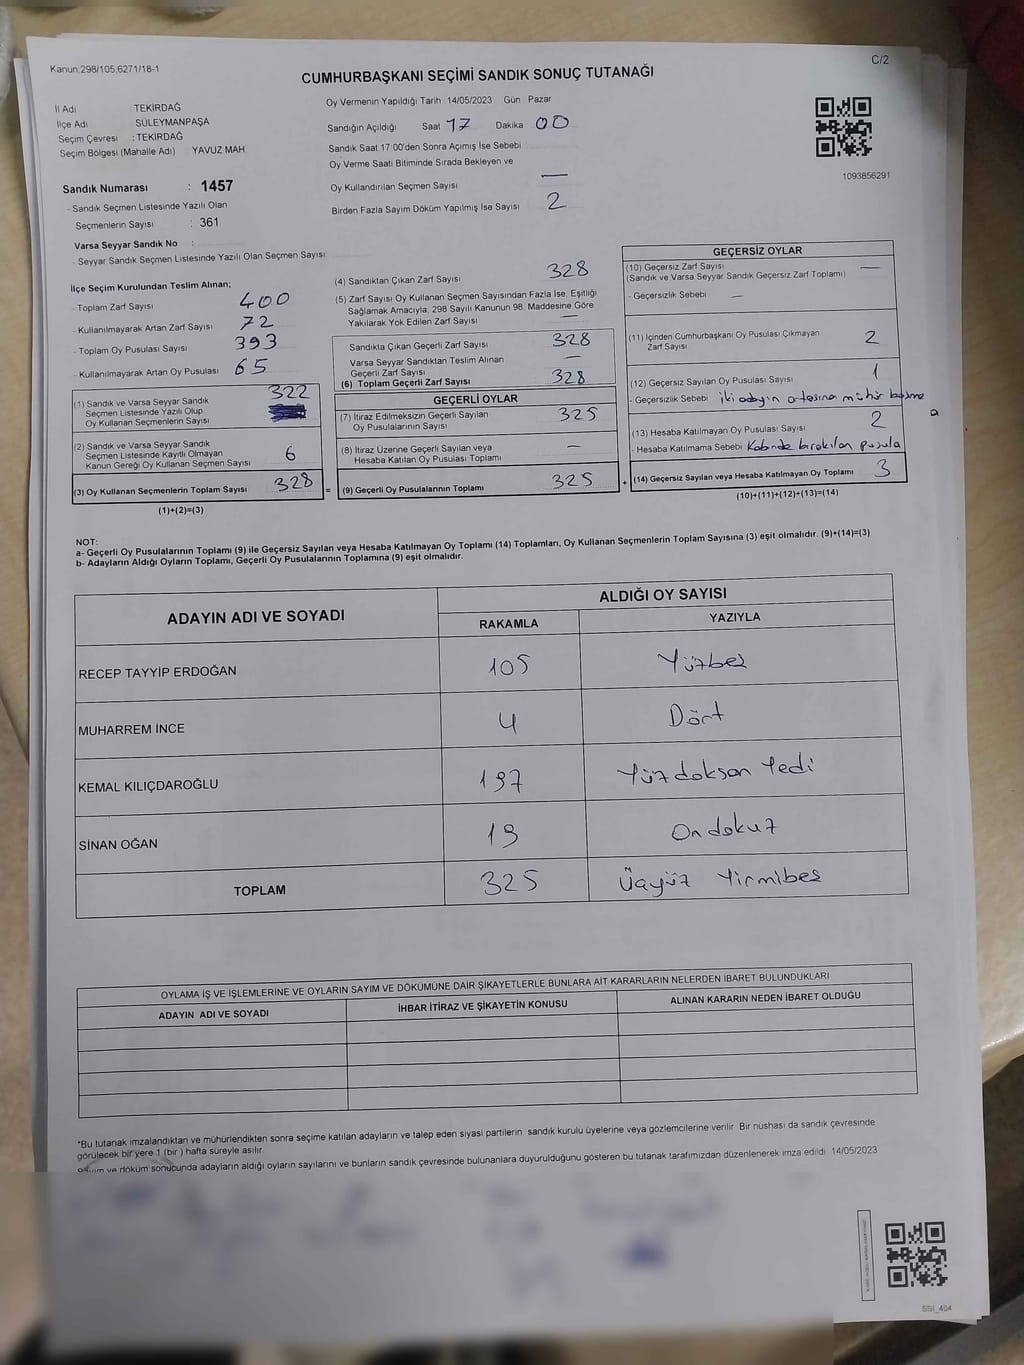 Kanun:298/105;6271/18-1
C/2
CUMHURBAŞKANI SEÇİMİ SANDIK SONUÇ TUTANAĞI
İl Adı TEKİRDAĞ
İlçe Adı SÜLEYMANPAŞA
Seçim Çevresi : TEKİRDAĞ
Seçim Bölgesi (Mahalle Adı) YAVUZ MAH.
Sandık Numarası : 1457
- Sandık Seçmen Listesinde Yazılı Olan
Seçmenlerin Sayısı : 361
Varsa Seyyar Sandık No :
- Seyyar Sandık Seçmen Listesinde Yazılı Olan Seçmen Sayısı:
Oy Vermenin Yapıldığı Tarih 14/05/2023 Gün Pazar
Sandığın Açıldığı Saat 17 Dakika 00
Sandık Saat 17:00'den Sonra Açımış İse Sebebi
Oy Verme Saati Bitiminde Sırada Bekleyen ve
Oy Kullandırılan Seçmen Sayısı —
Birden Fazla Sayım Döküm Yapılmış İse Sayısı 2
1093856291
İlçe Seçim Kurulundan Teslim Alınan;
- Toplam Zarf Sayısı 400
- Kullanılmayarak Artan Zarf Sayısı 72
- Toplam Oy Pusulası Sayısı 393
- Kullanılmayarak Artan Oy Pusulası 65
(1) Sandık ve Varsa Seyyar Sandık 322
Seçmen Listesinde Yazılı Olup
Oy Kullanan Seçmenlerin Sayısı
(2) Sandık ve Varsa Seyyar Sandık
Seçmen Listesinde Kayıtlı Olmayan 6
Kanun Gereği Oy Kullanan Seçmen Sayısı
(3) Oy Kullanan Seçmenlerin Toplam Sayısı 328 =
(1)+(2)=(3)
(4) Sandıktan Çıkan Zarf Sayısı 328
(5) Zarf Sayısı Oy Kullanan Seçmen Sayısından Fazla İse, Eşitliği
Sağlamak Amacıyla; 298 Sayılı Kanunun 98. Maddesine Göre
Yakılarak Yok Edilen Zarf Sayısı —
Sandıkta Çıkan Geçerli Zarf Sayısı 328
Varsa Seyyar Sandıktan Teslim Alınan —
Geçerli Zarf Sayısı
(6) Toplam Geçerli Zarf Sayısı 328
GEÇERLİ OYLAR
(7) İtiraz Edilmeksizin Geçerli Sayılan 325
Oy Pusulalarının Sayısı
(8) İtiraz Üzerine Geçerli Sayılan veya —
Hesaba Katılan Oy Pusulası Toplamı
(9) Geçerli Oy Pusulalarının Toplamı 325 +
GEÇERSİZ OYLAR
(10) Geçersiz Zarf Sayısı —
(Sandık ve Varsa Seyyar Sandık Geçersiz Zarf Toplamı)
- Geçersizlik Sebebi —
(11) İçinden Cumhurbaşkanı Oy Pusulası Çıkmayan 2
Zarf Sayısı
(12) Geçersiz Sayılan Oy Pusulası Sayısı 1
- Geçersizlik Sebebi iki adayın ortasına mühür basma
(13) Hesaba Katılmayan Oy Pusulası Sayısı 2
- Hesaba Katılmama Sebebi Kabinde bırakılan pusula
(14) Geçersiz Sayılan veya Hesaba Katılmayan Oy Toplamı 3
(10)+(11)+(12)+(13)=(14)
NOT:
a- Geçerli Oy Pusulalarının Toplamı (9) ile Geçersiz Sayılan veya Hesaba Katılmayan Oy Toplamı (14) Toplamları, Oy Kullanan Seçmenlerin Toplam Sayısına (3) eşit olmalıdır. (9)+(14)=(3)
b- Adayların Aldığı Oyların Toplamı, Geçerli Oy Pusulalarının Toplamına (9) eşit olmalıdır.
ADAYIN ADI VE SOYADI
ALDIĞI OY SAYISI
RAKAMLA YAZIYLA
RECEP TAYYİP ERDOĞAN 105 Yüzbeş
MUHARREM İNCE 4 Dört
KEMAL KILIÇDAROĞLU 197 Yüz doksan Yedi
SİNAN OĞAN 19 On dokuz
TOPLAM 325 Üçyüz Yirmibeş
OYLAMA İŞ VE İŞLEMLERİNE VE OYLARIN SAYIM VE DÖKÜMÜNE DAİR ŞİKAYETLERLE BUNLARA AİT KARARLARIN NELERDEN İBARET BULUNDUKLARI
ADAYIN ADI VE SOYADI
İHBAR İTİRAZ VE ŞİKAYETİN KONUSU
ALINAN KARARIN NEDEN İBARET OLDUĞU
*Bu tutanak imzalandıktan ve mühürlendikten sonra seçime katılan adayların ve talep eden siyasi partilerin sandık kurulu üyelerine veya gözlemcilerine verilir. Bir nüshası da sandık çevresinde
görülecek bir yere 1 (bir ) hafta süreyle asılır.
ve döküm sonucunda adayların aldığı oyların sayılarını ve bunların sandık çevresinde bulunanlara duyurulduğunu gösteren bu tutanak tarafımızdan düzenlenerek imza edildi. 14/05/2023
SSI_404